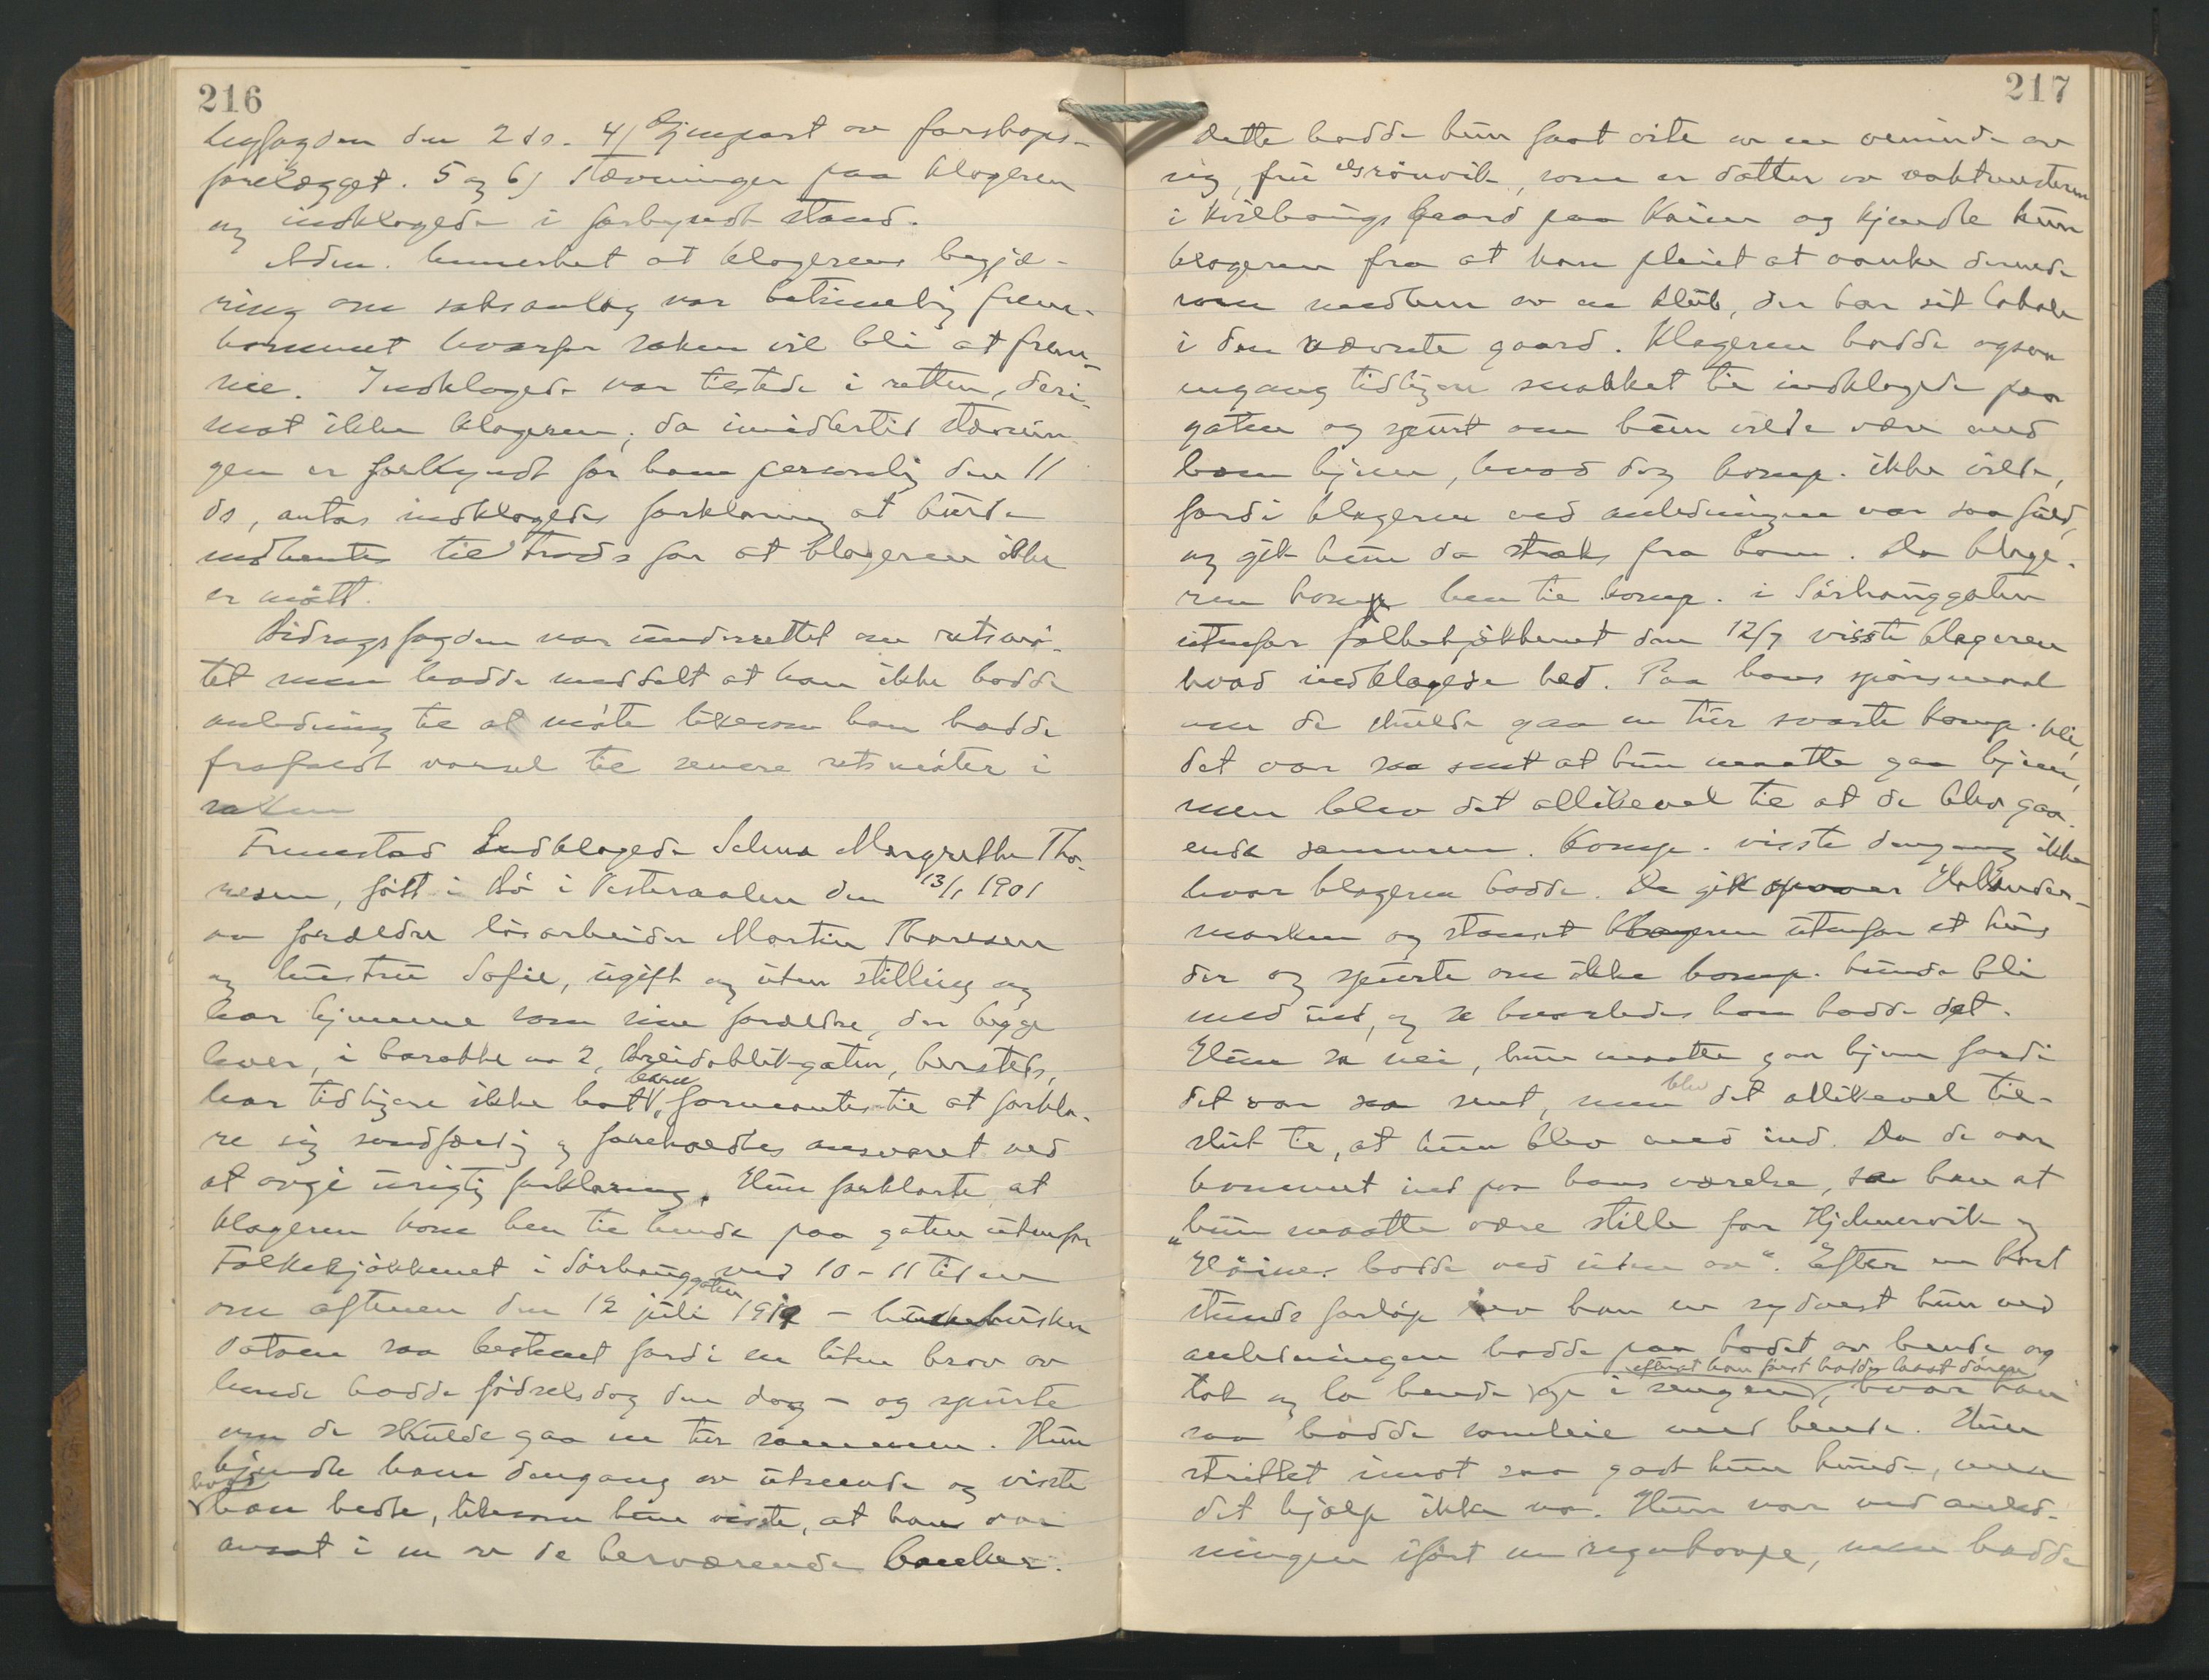 216
fogden den 2 ds. 4) Gjenpart av farskaps-
forelægget. 5 og 6) Stævninger paa klageren
og indklagede i forkyndt stand.
Adm. bemerket at klagerens begjæ-
ring om saksanlæg var betimelig frem-
kommet hvorfor saken vil bli at frem-
me. Indklagede var tilstede i retten, deri-
mot ikke klageren; da imidlertid stævnin-
gen er forkyndt for ham personlig den 11
ds, antas indklagedes forklaring at burde
indhentes til trods for at klageren ikke
er møtt.
Bidragsfogden var underrettet om retsmø-
tet men hadde meddelt at han ikke hadde
anledning til at møte likesom han hadde
frafaldt varsel til senere retsmøter i
saken
Fremstod Indklagede Selma Margrethe Tho-
resen, født i Bø i Vesteraalen den 13/1 1901
av forældre løsarbeider Martin Thoresen
og hustru Sofie, ugift og uten stilling og
har hjemme hos sine forældre, der begge
lever, i barakke no 2, Breidablikgaten, hersteds,
har tidligere ikke hatt barn, formantes til at forkla-
re sig sandfærdig og foreholdtes ansvaret ved
at avgi urigtig forklaring. Hun forklarte at
klageren kom hen til hende paa gaten utenfor
Folkekjøkkenet i Sørhauggaten ved 10-11 tiden
om aftenen den 12 juli 1919 - husker
datoen saa bestemt fordi en liten bror av
hende hadde fødselsdag den dag - og spurte
om de skulde gaa en tur sammen. Hun
kjendte ham dengang av utseende og visste
hvad han hedte, likesom hun visste, at han var
ansat i en av de herværende banker.
217
Dette hadde hun faat vite av en veninde av
sig, fru Grønvik, som er datter av vaktmesteren
i Kvilhaugs gaard paa Kaien og kjendte hun
klageren fra at han pleiet at vanke dernede
som medlem av en klub, der har sit lokale
i den nævnte gaard. Klageren hadde ogsaa
engang tidligere snakket til indklagede paa
gaten og spurt om hun vilde være med
ham hjem, hvad dog komp. ikke vilde,
fordi klageren ved anledningen var saa fuld,
og gik hun da straks fra ham. Da klage-
ren kom hen til komp. i Sørhauggaten
utenfor folkekjøkkenet den 12/7 visste klageren
hvad indklagede hed. Paa hans spørsmaal
om de skulde gaa en tur svarte komp. nei,
det var saa sent at hun maatte gaa hjem,
men blev det allikevel til at de blev gaa-
ende sammen. Komp. visste dengang ikke
hvor klageren bodde. De gik opover Haklander-
marken og stanset klageren utenfor et hus
der og spurte om ikke komp. kunde bli
med ind, og se hvorledes han hadde det.
Hun sa nei, hun maatte gaa hjem fordi
det var saa sent, men blev det allikevel til-
slut til, at hun blev med ind. Da de var
kommet ind paa hans værelse, sa han at
"hun maatte være stille for Hjelmervik og
Høines bodde ved siden av". Efter en kort
stunds forløp rev han en sydvest hun ved
anledningen hadde paa hodet av hende og
tok og la hende op i sengen, efterat han først hadde laast døren, hvor han
saa hadde samleie med hende. Hun
strittet imot saa godt hun kunde, men
det hjalp ikke noe. Hun var ved anled-
ningen iført en regnkaape, men hadde